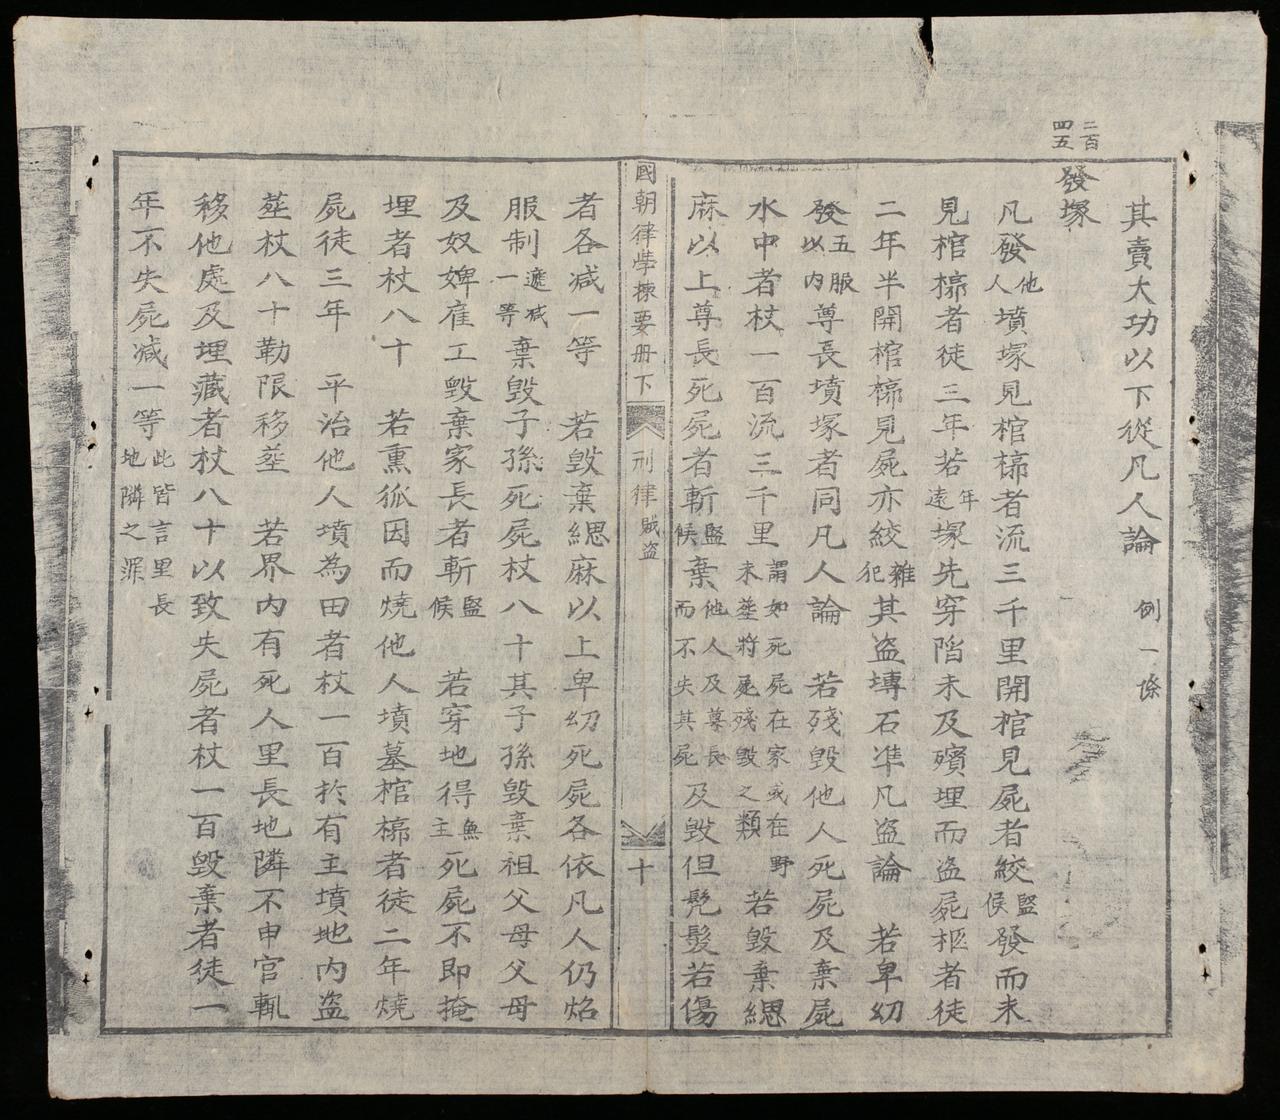 其賣大功以下從凡人論 例一條
二百四五
發塚
凡發他人墳塚見棺槨者流三千里開棺見屍者絞監候發而未
見棺槨者徒三年若年遠塚先穿陷未及殯埋而盗屍柩者徒
二年半開棺槨見屍亦絞雜犯其盗塼石准凡盗論 若卑幼
發五服以內尊長墳塚者同凡人論 若殘毀他人死屍及棄屍
水中者杖一百流三千里謂如死屍在家或在野未塟將屍殘毀之類若毀棄緦
麻以上尊長死屍者斬監候棄他人及尊長而不失其屍及毀但髡髮若傷
國朝律學揀要册下 刑律賊盗 十
者各减一等 若毀棄緦麻以上卑幼死屍各依凡人仍焰
服制遞减一等棄毀子孫死屍杖八十其子孫毀棄祖父母父母
及奴婢雇工毀棄家長者斬監候 若穿地得無主死屍不即掩
埋者杖八十 若熏狐因而燒他人墳墓棺槨者徒二年燒
屍徒三年 平治他人墳為田者杖一百於有主墳地內盗
塟杖八十勒限移塟 若界內有死人里長地隣不申官輒
移他處及埋藏者杖八十以致失屍者杖一百毀棄者徒一
年不失屍减一等此皆言里長地隣之罪